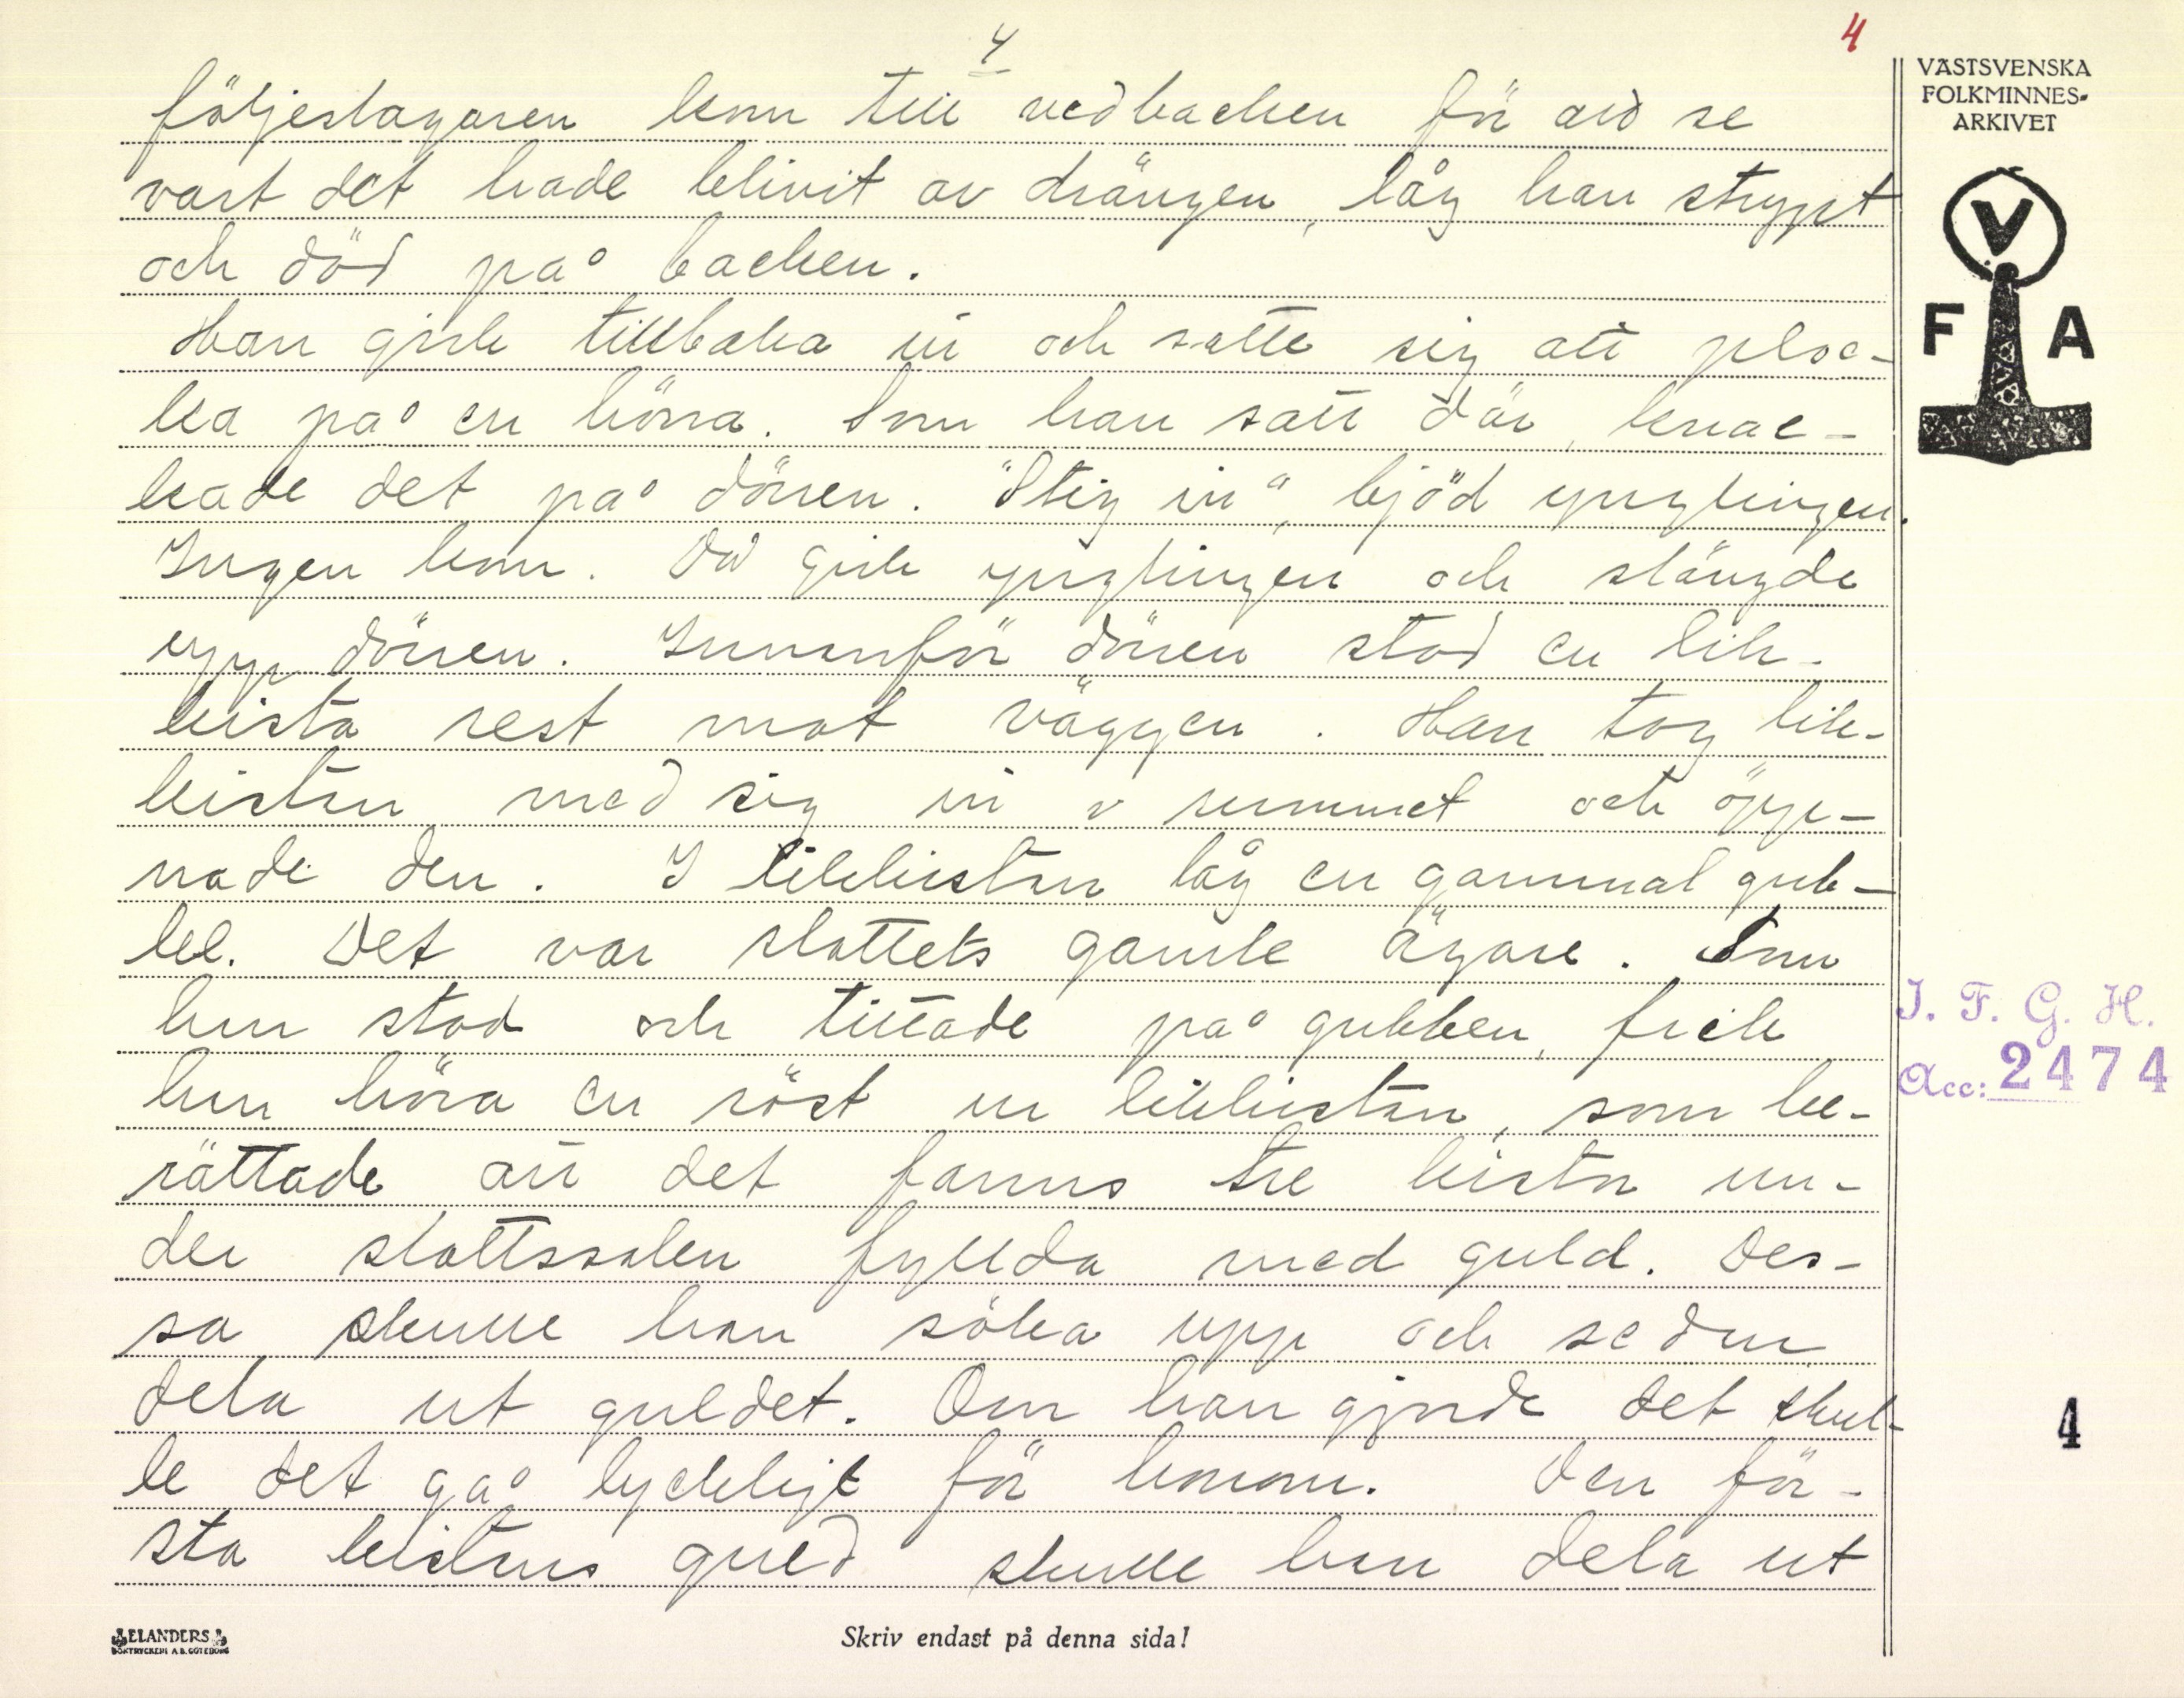 4
4
följeslagaren kom till vedbacken för att se
vart det hade blivit av drängen, låg han strypt
och död på backen.
Han gick tillbaka in och satte sig att ploc-
ka på en höna. Som han satt där, knac-
kade det på dörren. "Stig in", bjöd ynglingen.
Ingen kom. Då gick ynglingen och slängde
upp dörren. Innanför dörren stod en lik-
kista rest mot väggen. Han tog lik-
kistan med sig in i rummet och öpp-
nade den. I likkistan låg en gammal gub-
be. Det var slottets gamle ägare. Som
han stod och tittade på gubben, fick
han höra en röst ur likkistan, som be-
rättade att det fanns tre kistor un-
der slottssalen fyllda med guld. Des-
sa skulle han söka upp och sedan
dela ut guldet. Om han gjorde det skul-
le det gå lyckligt för honom. Den för-
sta kistans guld skulle han dela ut
VÄSTSVENSKA
FOLKMINNES-
ARKIVET
V
F A
I. F. G. H.
Acc: 2474
4
ELANDERS
BOKTRYCKERI A.B. GÖTEBORG
Skriv endast på denna sida!